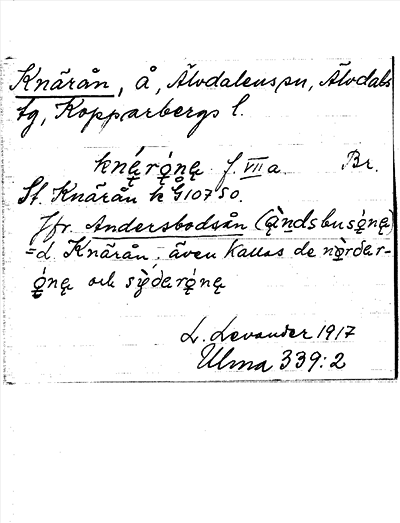 Knärån, å, Älvdalens sn, Älvdals
tg, Kopparbergs l.
knę́rǫ́nę f. VII a. Br.
St. Knärån k G 10750.
Jfr. Andersbodsån (ą̀ndsbusǫ́nę)
= d. Knärån; även kallas de nǫ̀rđer-
ǫ́nę och sỳđerǫ́nę
L. Levander 1917
Ulma 339:2